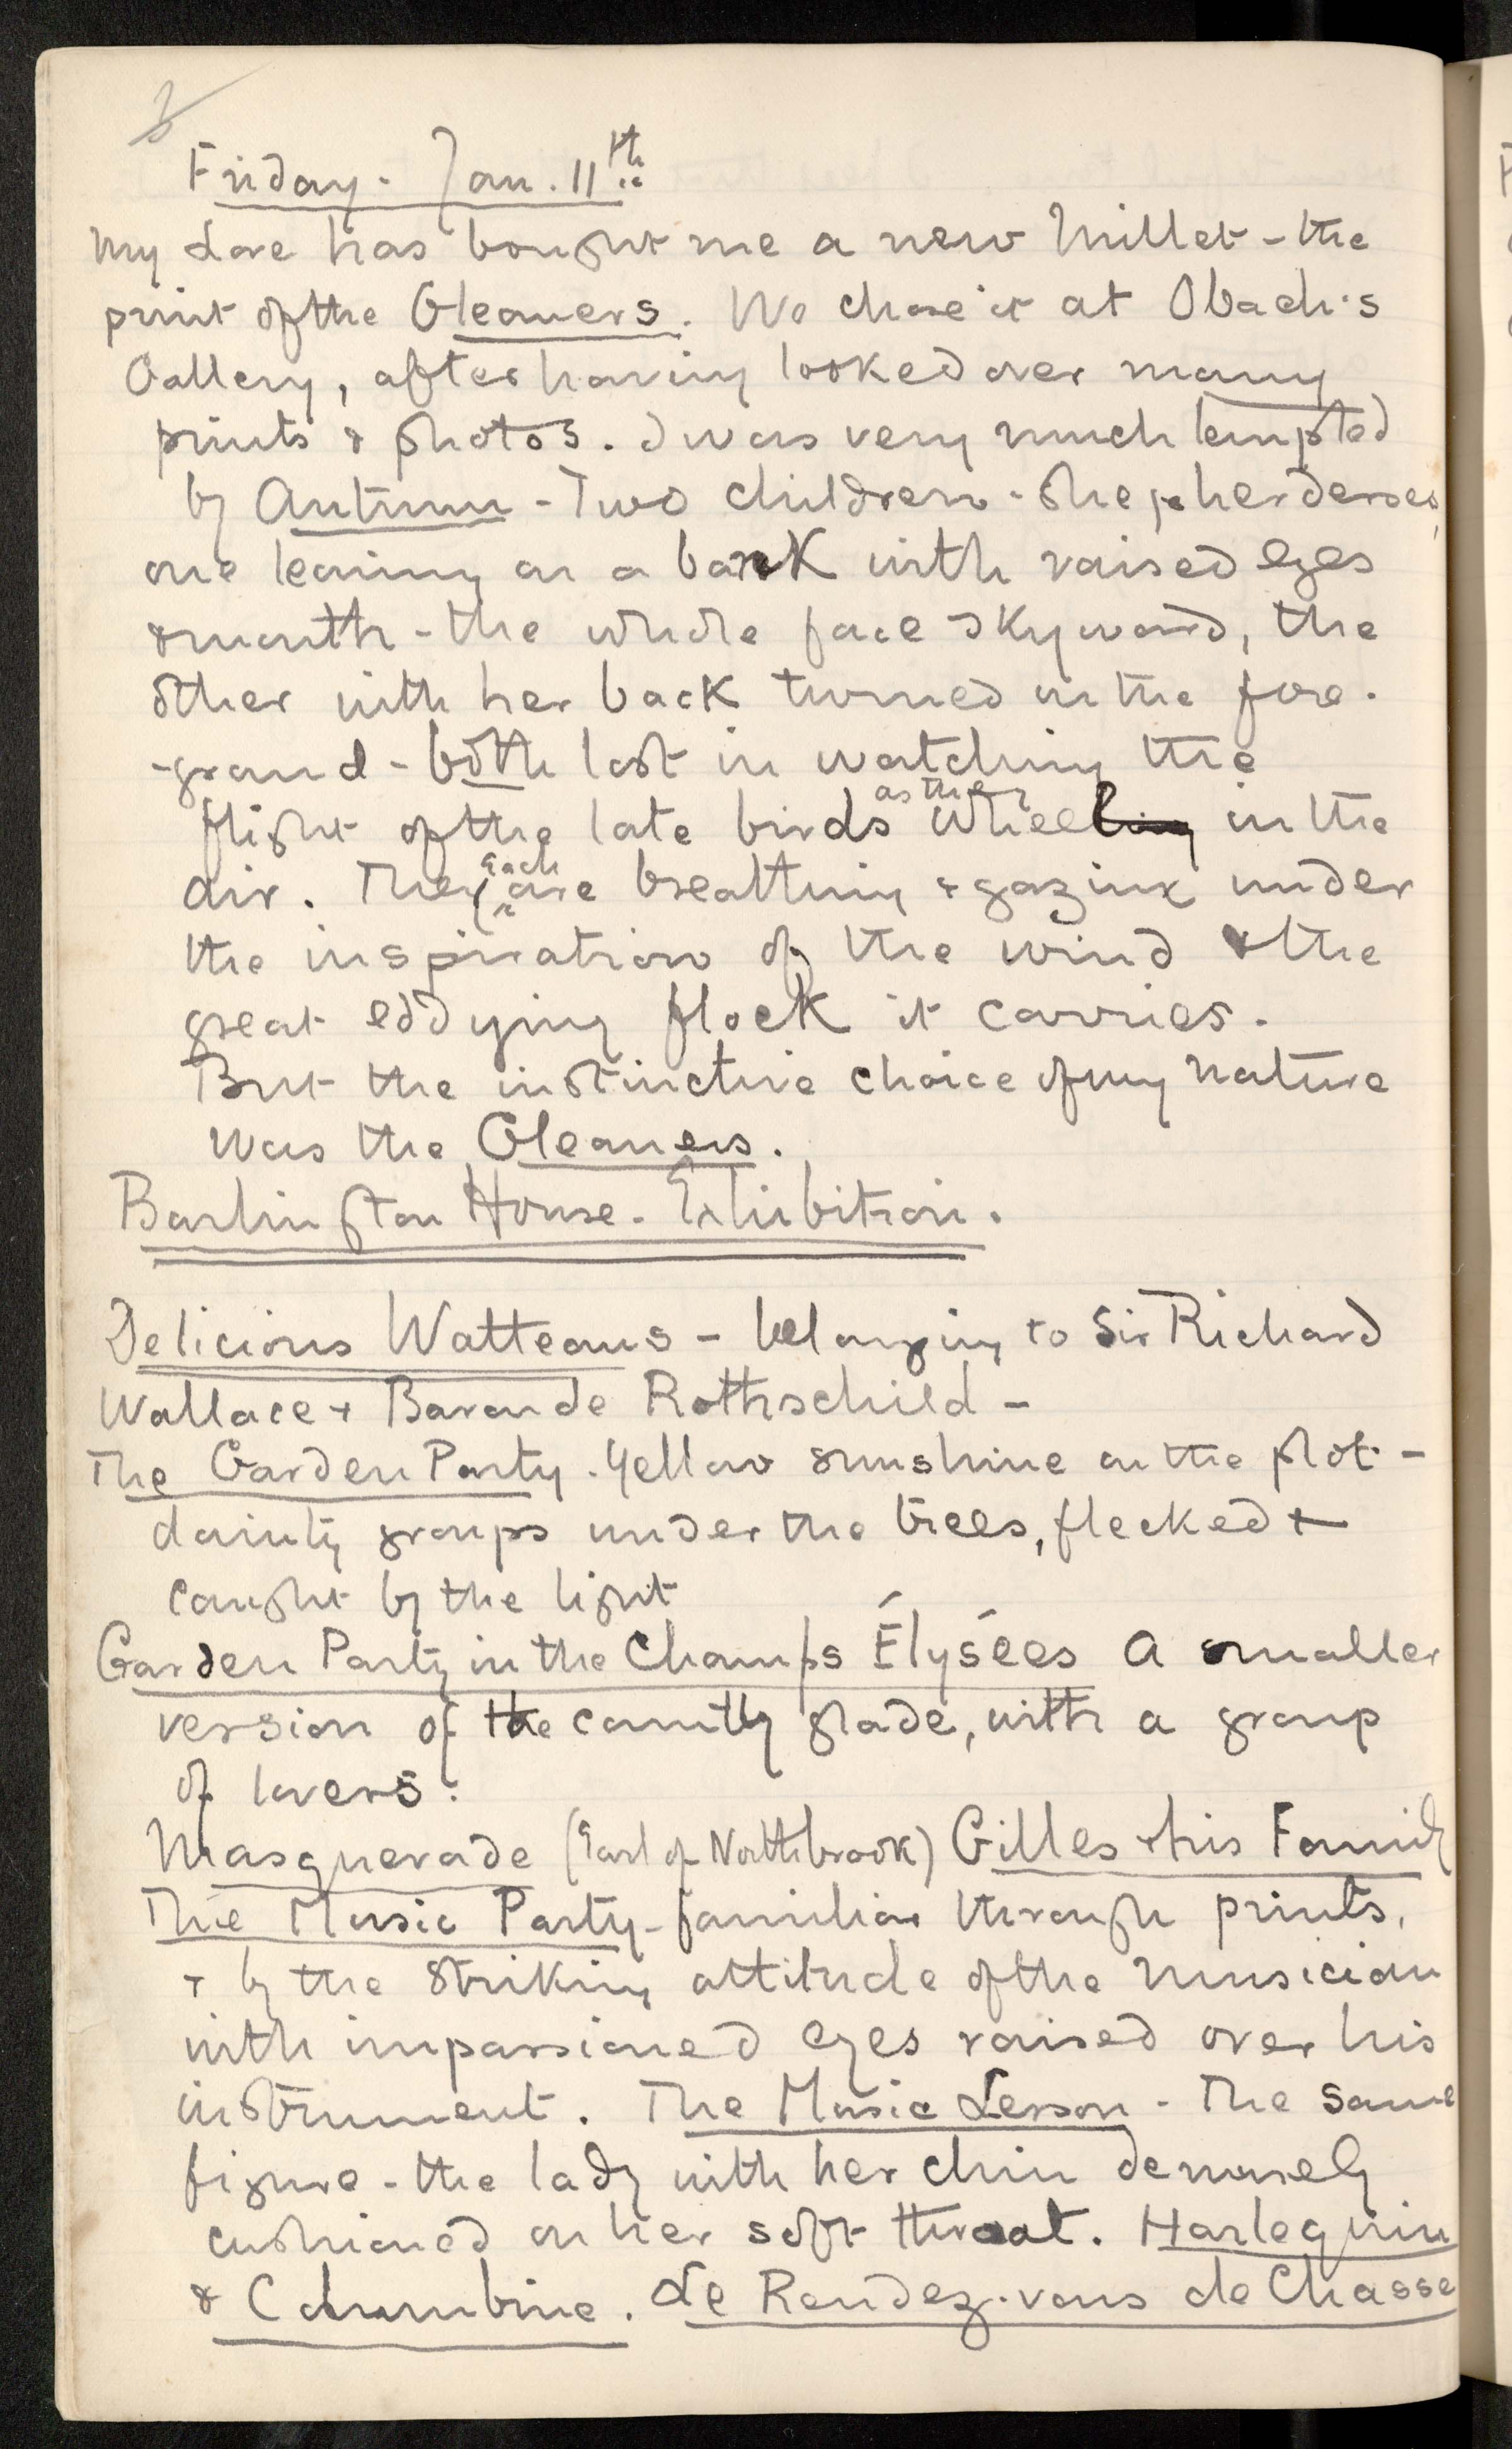 Friday. Jan. 11th
My Love has bought me a new Millet - the
print of the Gleaners. We chose it at Obach's
Gallery, after having looked over many
prints & photos. I was very much tempted
by Autumn - Two children - shepherdesses,
one leaning on a bank with raised eyes
& mouth - the whole face skyward, the
other with her back turned in the fore-
-ground - both lost in watching the
flight of the late birds as they wheeling in the
air. They each are breathing & gazing under
the inspiration of the wind & the
great eddying flock it carries.
But the instinctive choice of my nature
was the Gleaners.
Burlington House. Exhibition.
Delicious Watteaus - belonging to Sir Richard
Wallace & Baron de Rothschild -
The Garden Party. Yellow sunshine on the plot -
dainty groups under the trees, flecked &
caught by the light
Garden Party in the Champs Élysées A smaller
version of the country glade, with a group
of lovers.
Masquerade (Earl of Northbrook) Gilles & his Family
The Music Party - familiar through prints,
& by the striking attitude of the musician
with impassioned eyes raised over his
instrument. The Music Lesson - The same
figure - the lady with her chin demurely
cushioned on her soft throat. Harlequin
& Columbine. Le Rendez-vous de Chasse